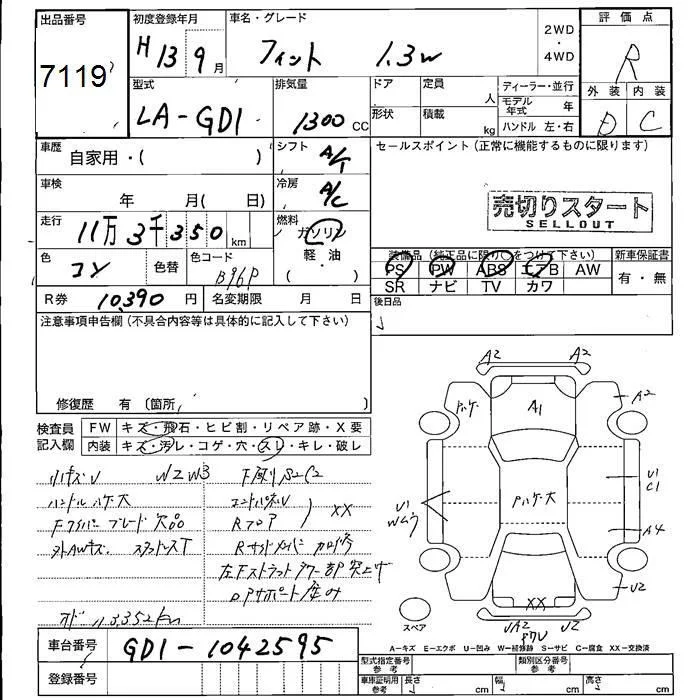 出品番号
7119
初度登録年月
H 13年 9月
車名・グレード
フィット 1.3W
2WD
・
4WD
評価点
R
外装 内装
D C
型式
LA-GD1
排気量
1300 CC
ドア
定員
人
形状
積載
kg
ディーラー・並行
モデル年式 年
ハンドル 左・右
車歴
自家用・( )
シフト
A/T
セールスポイント (正常に機能するものに限ります)
売切りスタート
SELLOUT
車検
年 月( 日)
冷房
A/C
走行
11万 3千 350 km
燃料
ガソリン
軽・油
( )
色
コン
色替
色コード
B96P
装備品 (純正品に限り○をつけて下さい)
PS PW ABS エアB AW
SR ナビ TV カワ
新車保証書
有・無
R券 10,390 円
名変期限 月 日
後日品
注意事項申告欄 (不具合内容等は具体的に記入して下さい)
修復歴 有 〔箇所 〕
検査員
記入欄
FW キズ・飛石・ヒビ割・リペア跡・X要
内装 キズ・汚レ・コゲ・穴・スレ・キレ・破レ
小キズU W2 W3
ハンドルハゲ大
Fワイパーブレード欠品
外AWキズ スタッドレスT
エンドパネルU
Rフロア
XX
左Fストラットタワー部突上げ
A2 A2
A1
A2
Pハゲ大
U1
C1
U1
A4
U2
XX
UA2
U2
スペア
A-キズ E-エクボ U-凹み W-補修跡 S-サビ C-腐食 XX-交換済
車台番号
GD1-1042595
登録番号
型式指定番号
参考
類別区分番号
参考
車庫証明用
参考
長さ cm
幅 cm
高さ cm